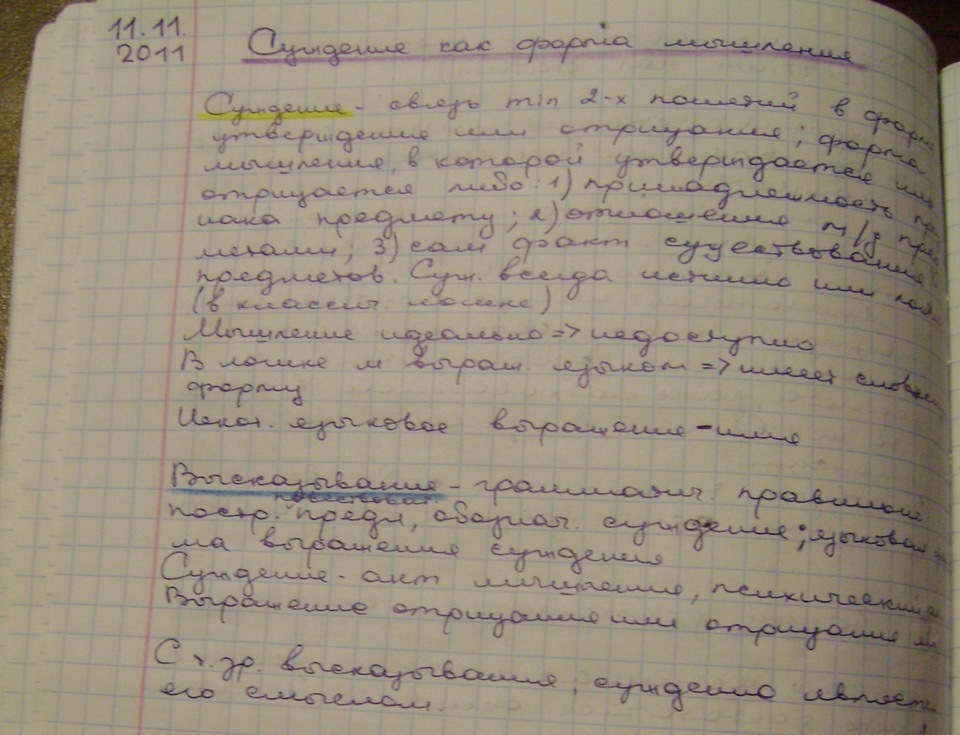 11.11.
2011 Суждение как форма мышления
Суждение - связь min 2-х понятий в форме
утверждения или отрицания; форма
мышления, в которой утверждается или
отрицается либо: 1) принадлежность приз
нака предмету; 2) отношения м/д пред
метами; 3) сам факт существования
предметов. Сужд. всегда истинно или ложн
(в классич. логике)
Мышление идеально => недоступно
В логике м выраж. языком => имеет словесн
форму
Некот. языковое выражение - имя
Высказывание - грамматич правильно
повествоват
постр. предл, обознач. суждение; языковая фор
ма выражения суждения
Суждение - акт мышления, психический а
Выражение отрицания или отрицание
С т. зр. высказывания, суждение является
его смыслом.